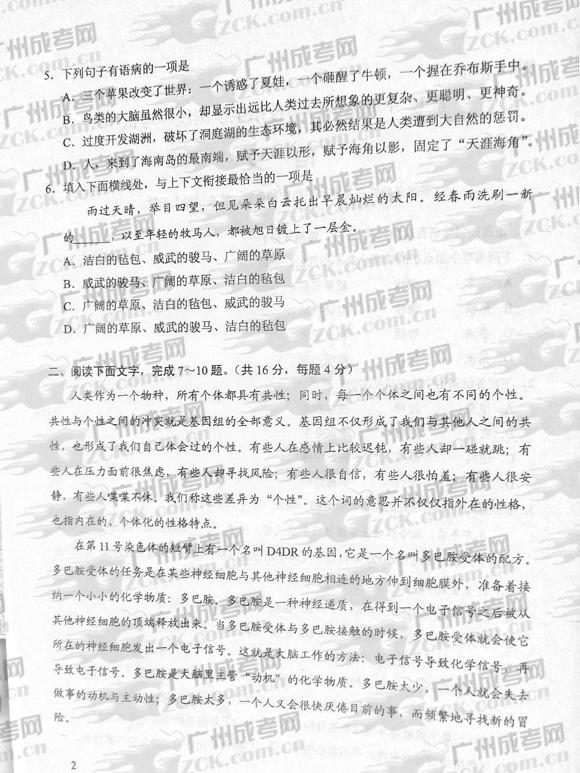 5．下列句子有语病的一项是
A．三个苹果改变了世界：一个诱惑了夏娃，一个砸醒了牛顿，一个握在乔布斯手中。
B．鸟类的大脑虽然很小，却显示出远比人类过去所想象的更复杂、更聪明、更神奇。
C．过度开发湖洲，破坏了洞庭湖的生态环境，其必然结果是人类遭到大自然的惩罚。
D．人，来到了海南岛的最南端，赋予天涯以形，赋予海角以影，固定了“天涯海角”。
6．填入下面横线处，与上下文衔接最恰当的一项是
雨过天晴，举目四望，但见朵朵白云托出早晨灿烂的太阳。经春雨洗刷一新
的______，以至年轻的牧马人，都被旭日镀上了一层金。
A．洁白的毡包、威武的骏马、广阔的草原
B．威武的骏马、广阔的草原、洁白的毡包
C．广阔的草原、洁白的毡包、威武的骏马
D．广阔的草原、威武的骏马、洁白的毡包
二、阅读下面文字，完成7～10题。（共16分，每题4分）
人类作为一个物种，所有个体都具有共性；同时，每一个个体之间也有不同的个性。
共性与个性之间的冲突就是基因组的全部意义。基因组不仅形成了我们与其他人之间的共
性，也形成了我们自己体会过的个性。有些人在感情上比较迟钝，有些人却一碰就跳；有
些人在压力面前很焦虑，有些人却寻找风险；有些人很自信，有些人很怕羞；有些人很安
静，有些人喋喋不休。我们称这些差异为“个性”。这个词的意思并不仅仅指外在的性格，
也指内在的、个体化的性格特点。
在第11号染色体的短臂上有一个名叫D4DR的基因，它是一个名叫多巴胺受体的配方。
多巴胺受体的任务是在某些神经细胞与其他神经细胞相连的地方伸到细胞膜外，准备着接
纳一个小小的化学物质：多巴胺。多巴胺是一种神经递质，在得到一个电子信号之后被从
其他神经细胞的顶端释放出来。当多巴胺受体与多巴胺接触的时候，多巴胺受体就会使它
所在的神经细胞发出一个电子信号。这就是大脑工作的方法：电子信号导致化学信号，再
导致电子信号。多巴胺是大脑里主管“动机”的化学物质。多巴胺太少，一个人就会失去
做事的动机与主动性；多巴胺太多，一个人又会很快厌倦目前的事，而频繁地寻找新的冒
险。
2
广州成考网
GZCK.com.cn